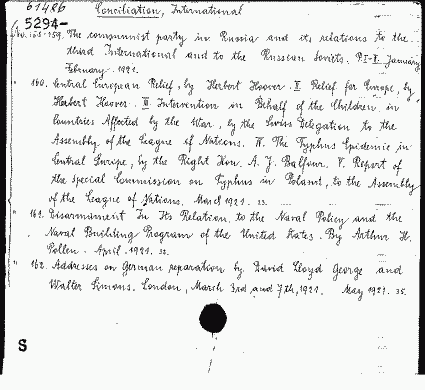 61486 Conciliation, International
5294-
No. 158-159. The communist party in Russia and its relations to the
third International and to the Russian Soviets. P. I-II. January
February. 1921.
" 160. Central European Relief, by Herbert Hoover. II Relief for Europe, by
Herbert Hoover. III Intervention in Behalf of the Children in
Countries Affected by the War, by the Swiss Delegation to the
Assembly of the League of Nations. IV. The Typhus Epidemic in
Central Europe, by the Right Hon. A. J. Balfour. V. Report of
the Special Commission on Typhus in Poland, to the Assembly
of the League of Nations. March 1921. 33.
" 161. Disarmament In Its Relation to the Naval Policy and the
Naval Building Program of the United States. By Arthur H.
Pollen. April. 1921. 32.
" 162. Addresses on German reparation by David Lloyd George and
Walter Simons. London, March 3rd and 7th, 1921. May 1921. 35.
S